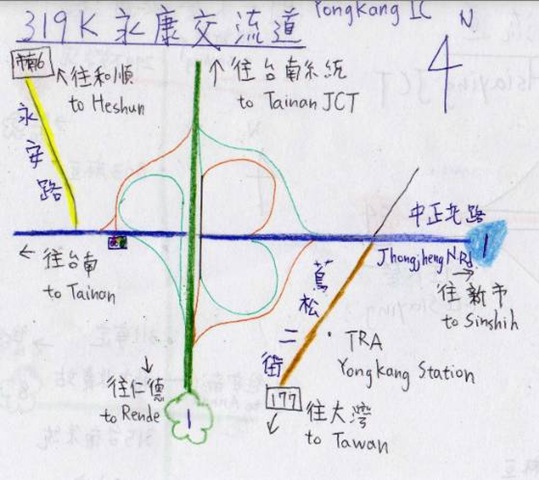 319K 永康交流道 Yongkang IC
N
市南6
↖往和順
to Heshun
↑往台南系統
to Tainan JCT
永安路
中正北路
1
Jhongjheng N Rd
←往台南
to Tainan
→
往新市
to Sinshih
蔦松二街
TRA
Yongkang Station
↓
往仁德
to Rende
1
177
往大灣
to Tawan